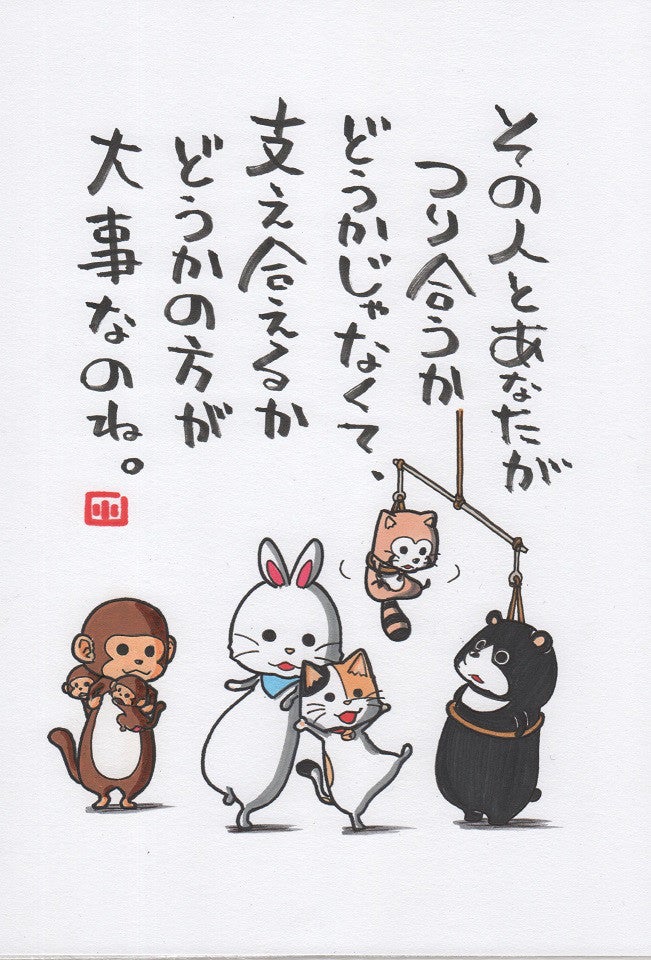 その人とあなたが
つり合うか
どうかじゃなくて、
支え合えるか
どうかの方が
大事なのね。